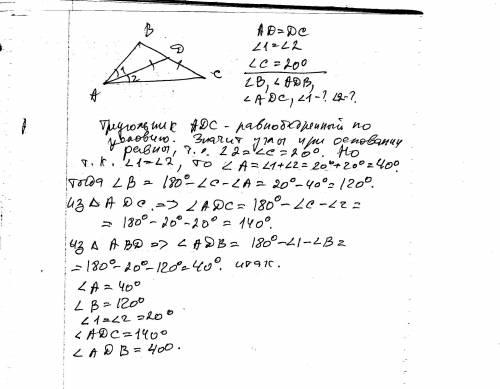 B
D
C
A
1
2
AD=DC
∠1=∠2
∠C=20°
∠B, ∠ADB,
∠ADC, ∠1-? ∠2-?
Треугольник ADC - равнобедренный по
условию. Значит углы при основании
равны, т.е. ∠2=∠C=20°. Но
т.к. ∠1=∠2, то ∠A=∠1+∠2=20°+20°=40°.
Тогда ∠B = 180°-∠C-∠A = 20°-40°=120°.
Из △ADC => ∠ADC = 180°-∠C-∠2=
= 180°-20°-20° = 140°.
Из △ ABD => ∠ADB = 180°-∠1-∠B=
=180°-20°-120°=40°. итак.
∠A = 40°
∠B = 120°
∠1=∠2=20°
∠ADC=140°
∠ADB = 40°.